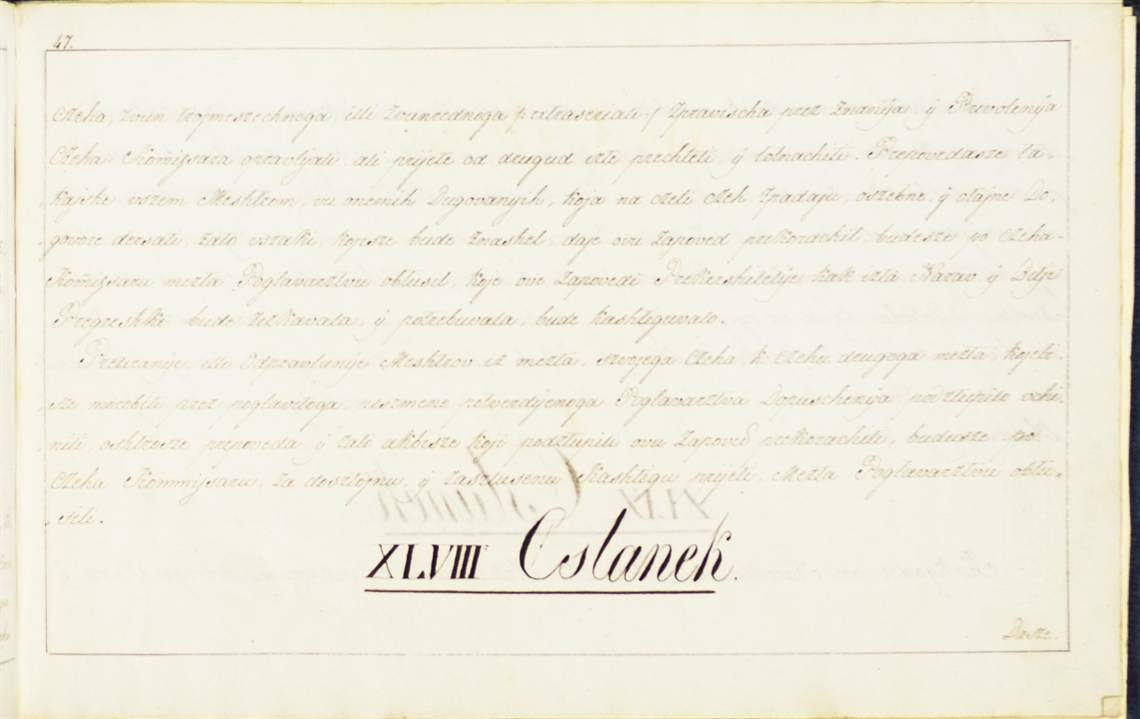 47.
Czeha, zvun trojmeszechnoga, illi zvunrednoga Zpravischa prez Znanija, ÿ Privolenija
Czeha Kommiszara opravljati, ali prijete od drugud izte prechteti, ÿ tolnachiti. Prepovedasze ta-
kajshe vszem Meshtrom, vu onemih Dugovanjih, koja na czeli Czeh zpadaju, oszebne, ÿ otajne Do,
govore dersati, zato vszaki, kojisze bude znashel, daje ovu zapoved prekorachil, budesze po Czeha-
Kommiszaru mezta Poglavarztvu obtusel, koje ove zapovedi Prekershitelje kak izta Narav ÿ Dilje
Pregreshke bude ziskavala, ÿ potrebuvala, bude kashtiguvalo.
Preziranje, illi Odpravlanije Meshtrov iz mezta, szvojega Czeha, k Czehu drugoga mezta, kojebi
sze morebiti prez poglavitoga, piszmeno potverdjenoga Poglavarztva Dopuschenija podztupilo vchi-
niti, oshtrosze prepoveda, ÿ zato akobisze koji podztupili ovu zapoved prekorachiti, budusze po
Czeha Kommiszaru, za dosztojnu, ÿ zaszlusenu Kashtigu prijeti, Mezta Poglavarztvu obtu-
siti.
XLVIII Cslanek.
Dasze